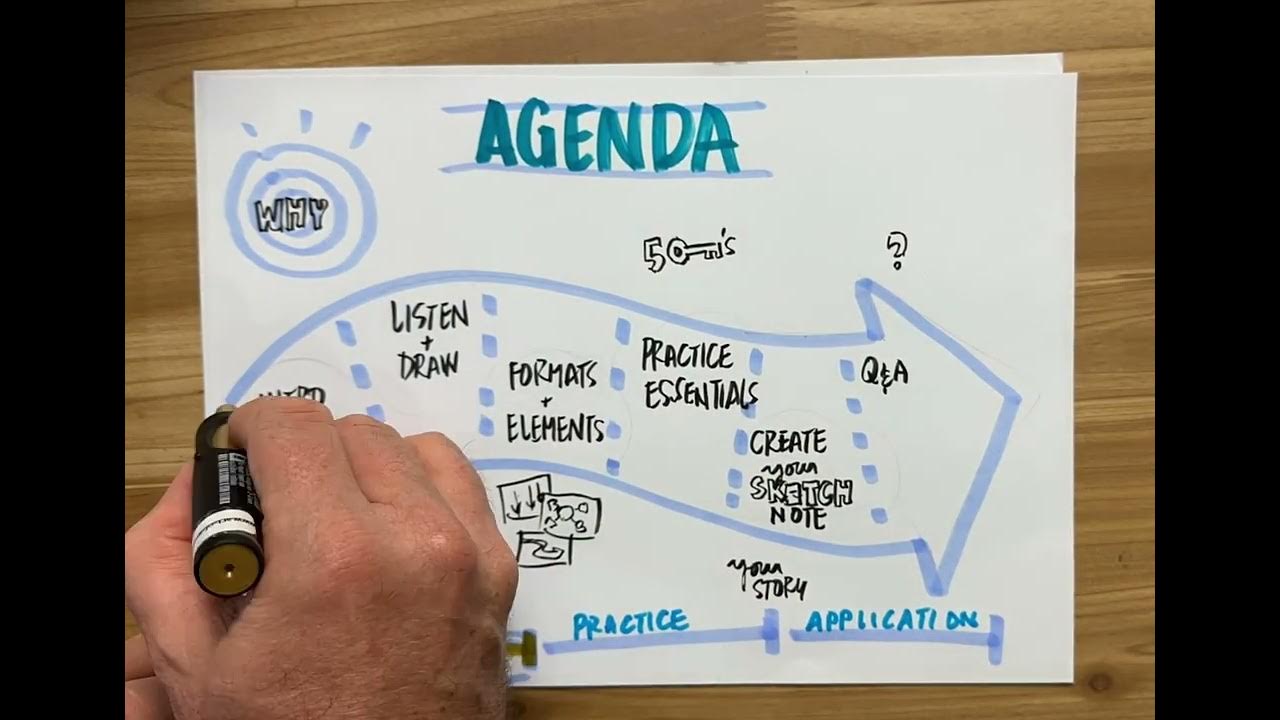 AGENDA
WHY
5 's
?
LISTEN
+
DRAW
FORMATS
+
ELEMENTS
PRACTICE
ESSENTIALS
CREATE
your
SKETCH
NOTE
Q&A
your
STORY
PRACTICE
APPLICATION